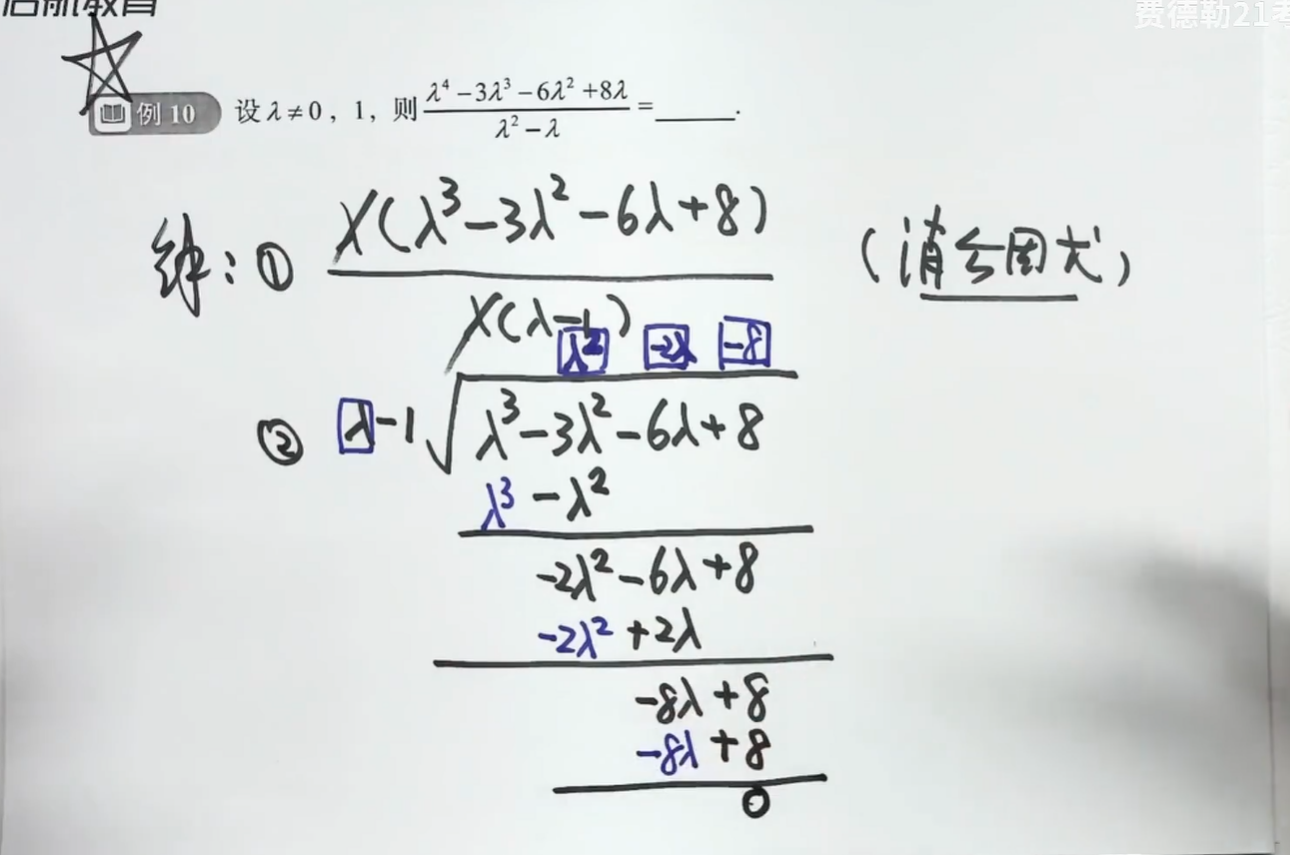 启航教育
费德勒21考
例 10 设 λ≠0，1，则 (λ⁴-3λ³-6λ²+8λ)/(λ²-λ) = ______.
解：① λ(λ³-3λ²-6λ+8) （消公因式）
λ(λ-1)
λ² -2λ -8
② λ-1 √ λ³-3λ²-6λ+8
λ³-λ²
-2λ²-6λ+8
-2λ²+2λ
-8λ+8
-8λ+8
0